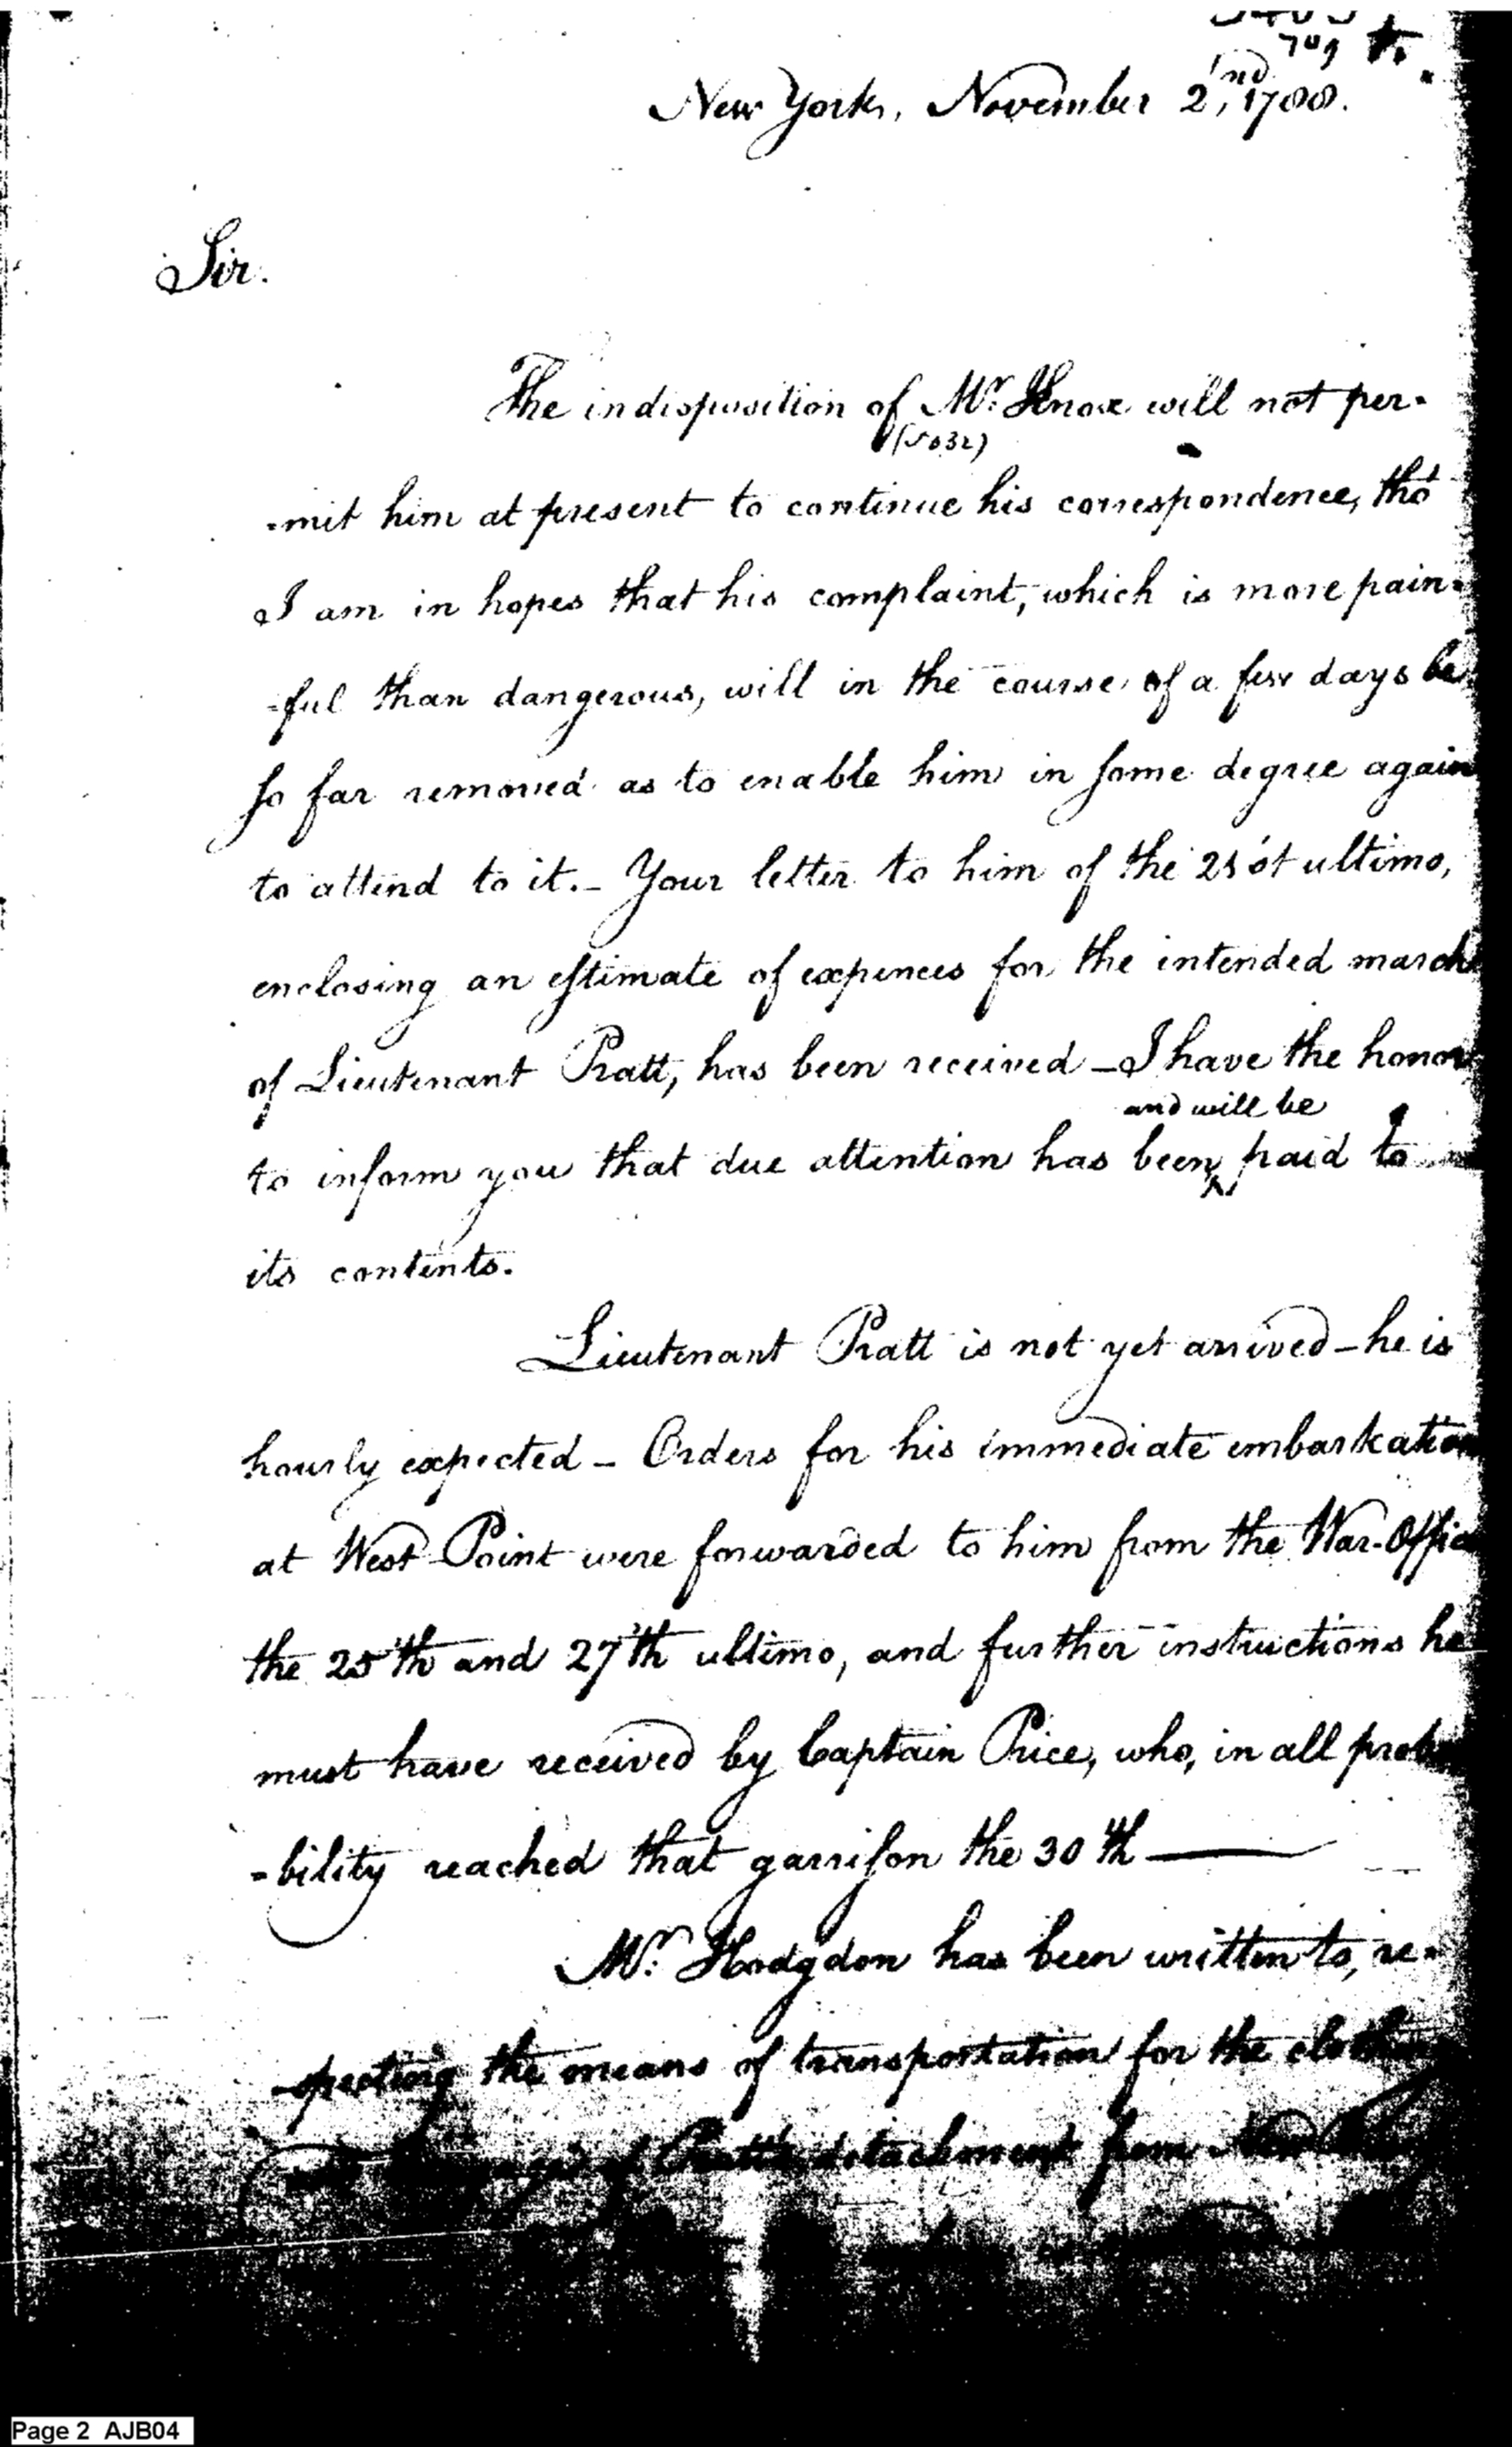 709
New York, November 2,nd 1788.
Sir.
The indisposition of Mr. Knox will not per-
(5032)
-mit him at present to continue his correspondence, tho'
I am in hopes that his complaint, which is more pain-
-ful than dangerous, will in the course of a few days be
so far removed as to enable him in some degree again
to attend to it. - Your letter to him of the 21'st ultimo,
enclosing an estimate of expences for the intended march
of Lieutenant Pratt, has been received - I have the honor
and will be
to inform you that due attention has been ^ paid to
its contents.
Lieutenant Pratt is not yet arrived - he is
hourly expected - Orders for his immediate embarkation
at West Point were forwarded to him from the War-Office
the 25'th and 27'th ultimo, and further instructions he
must have received by Captain Price, who, in all proba
-bility reached that garrison the 30'th
Mr. Hodgdon has been written to, re-
-specting the means of transportation for the clothing
of Pratt's detachment from New
Page 2 AJB04